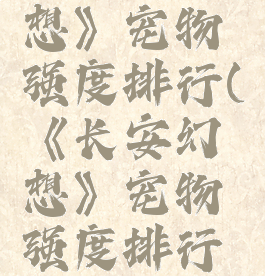 想》宠物
强度排行(
《长安幻
想》宠物
强度排行